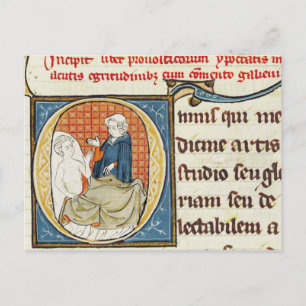 Incipit liber pronosticorum ypocratis in
acutis egritudinibz cum comento galieni
Omnis qui me
dicine artis
studio seu glo
riam seu de
lectabilem a